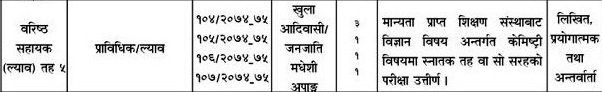 वरिष्ठ
सहायक
(ल्याव) तह ५
प्राविधिक/ल्याव
१०४/२०७४_७५
१०५/२०७४_७५
१०६/२०७४_७५
१०७/२०७४_७५
खुला
आदिवासी/
जनजाति
मधेशी
अपाङ्ग
३
१
१
१
मान्यता प्राप्त शिक्षण संस्थाबाट
विज्ञान विषय अन्तर्गत केमिष्ट्री
विषयमा स्नातक तह वा सो सरहको
परीक्षा उत्तीर्ण ।
लिखित,
प्रयोगात्मक
तथा
अन्तर्वार्ता